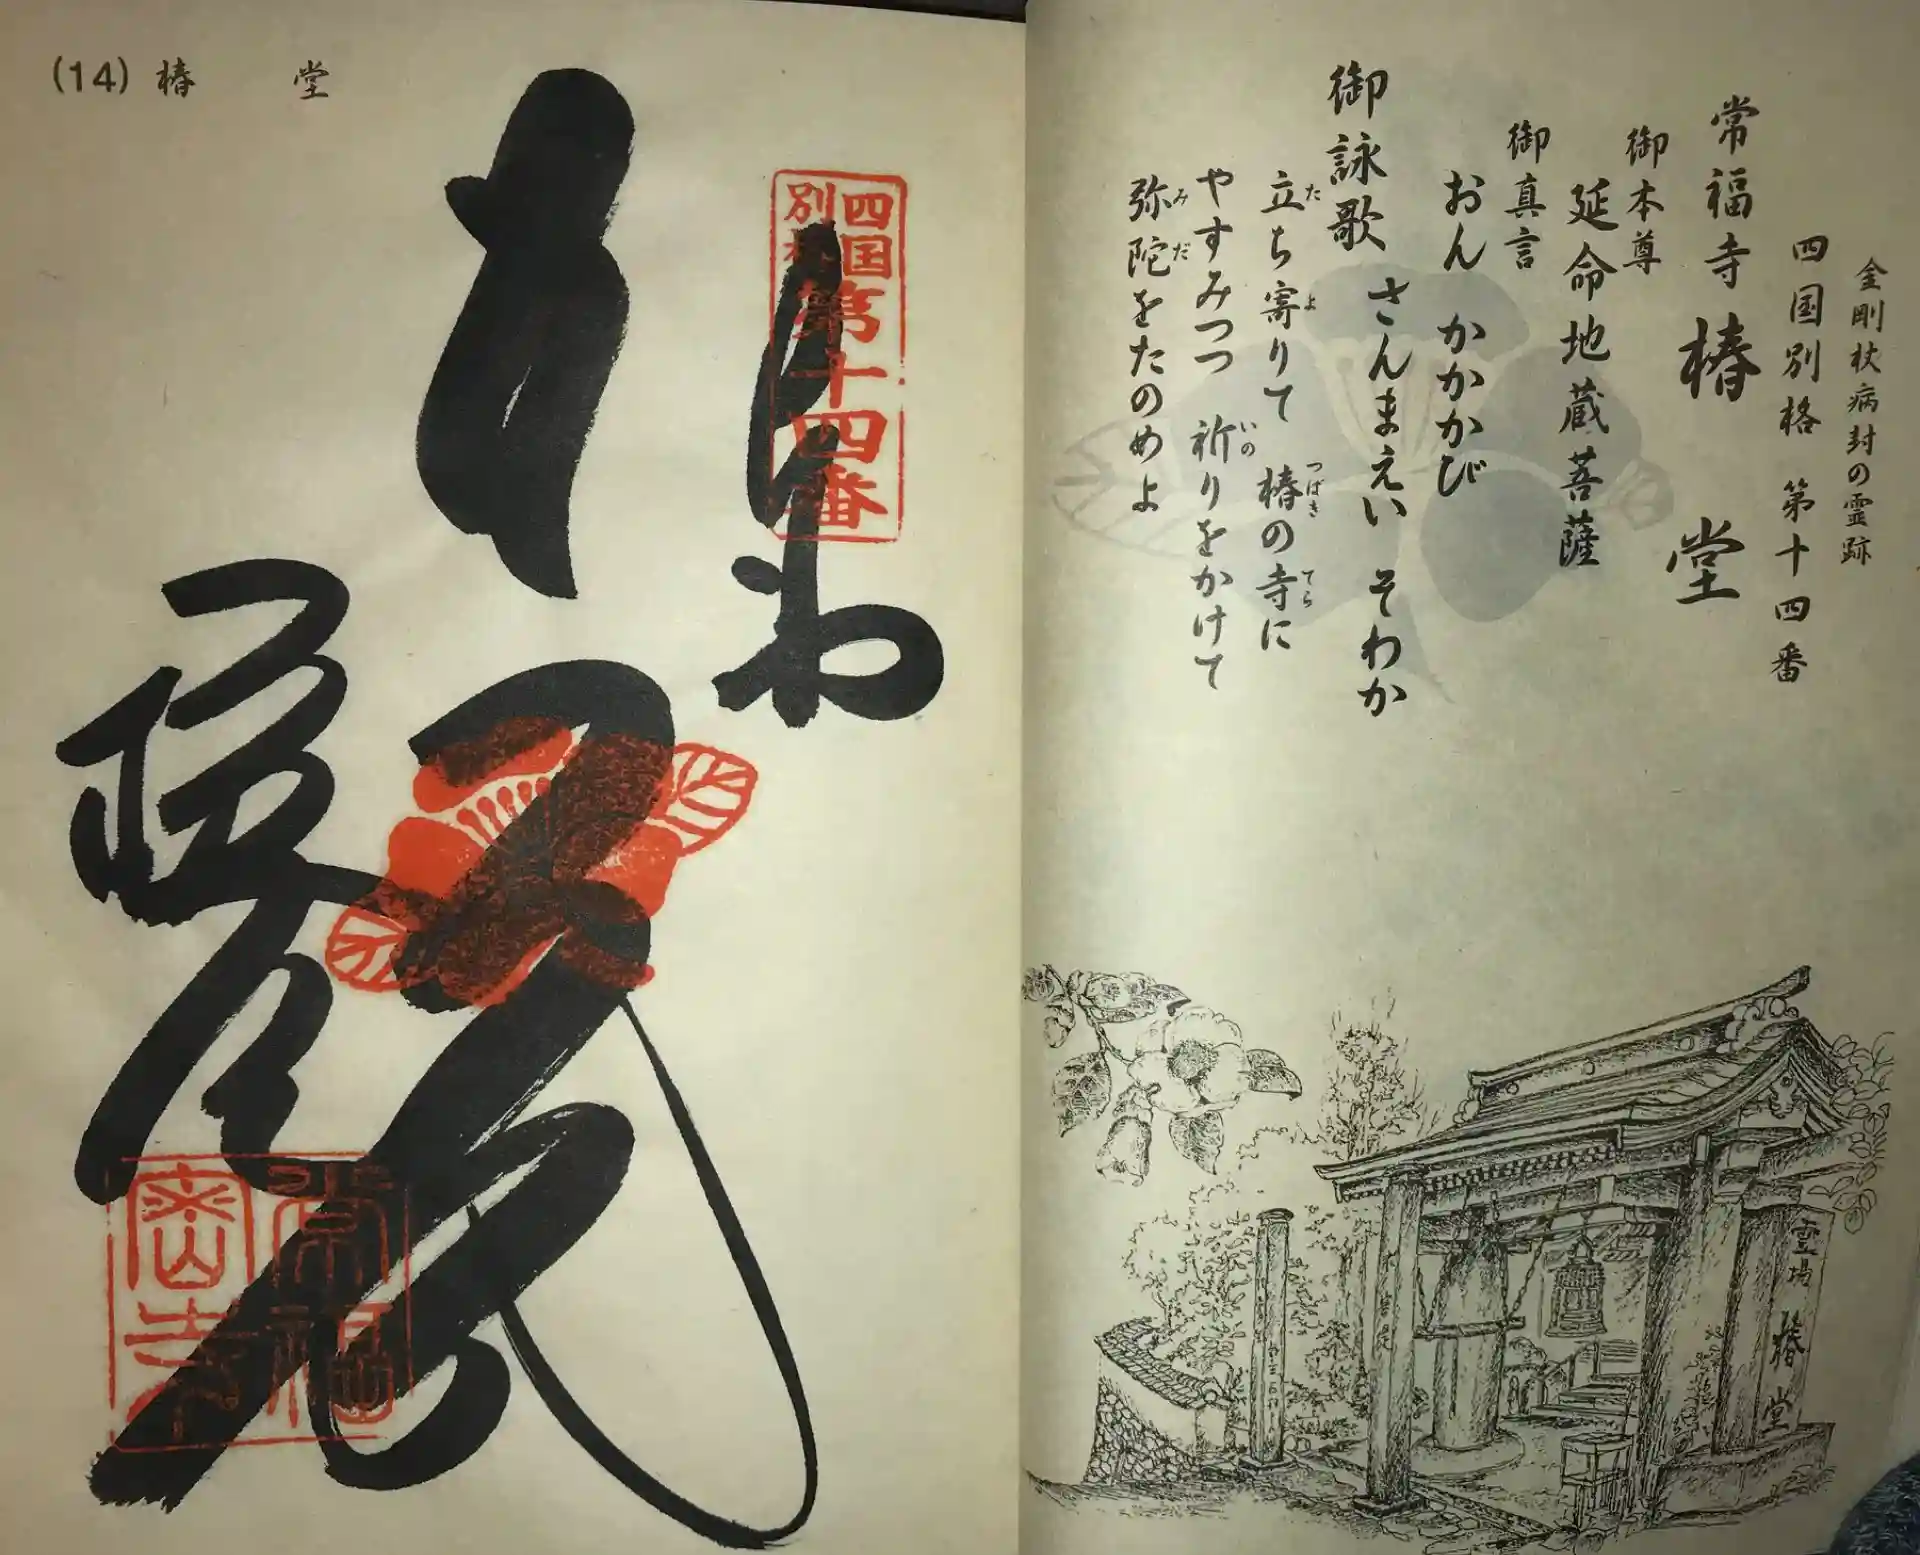 金剛杖病封の霊跡
四国別格 第十四番
常福寺 椿堂
御本尊
延命地蔵菩薩
御真言
おん かかかび
さんまえい そわか
御詠歌
立ち寄りて 椿の寺に
やすみつつ 祈りをかけて
弥陀をたのめよ
霊場 椿堂
(14) 椿 堂
四国
別格
第十四番
常福
寺